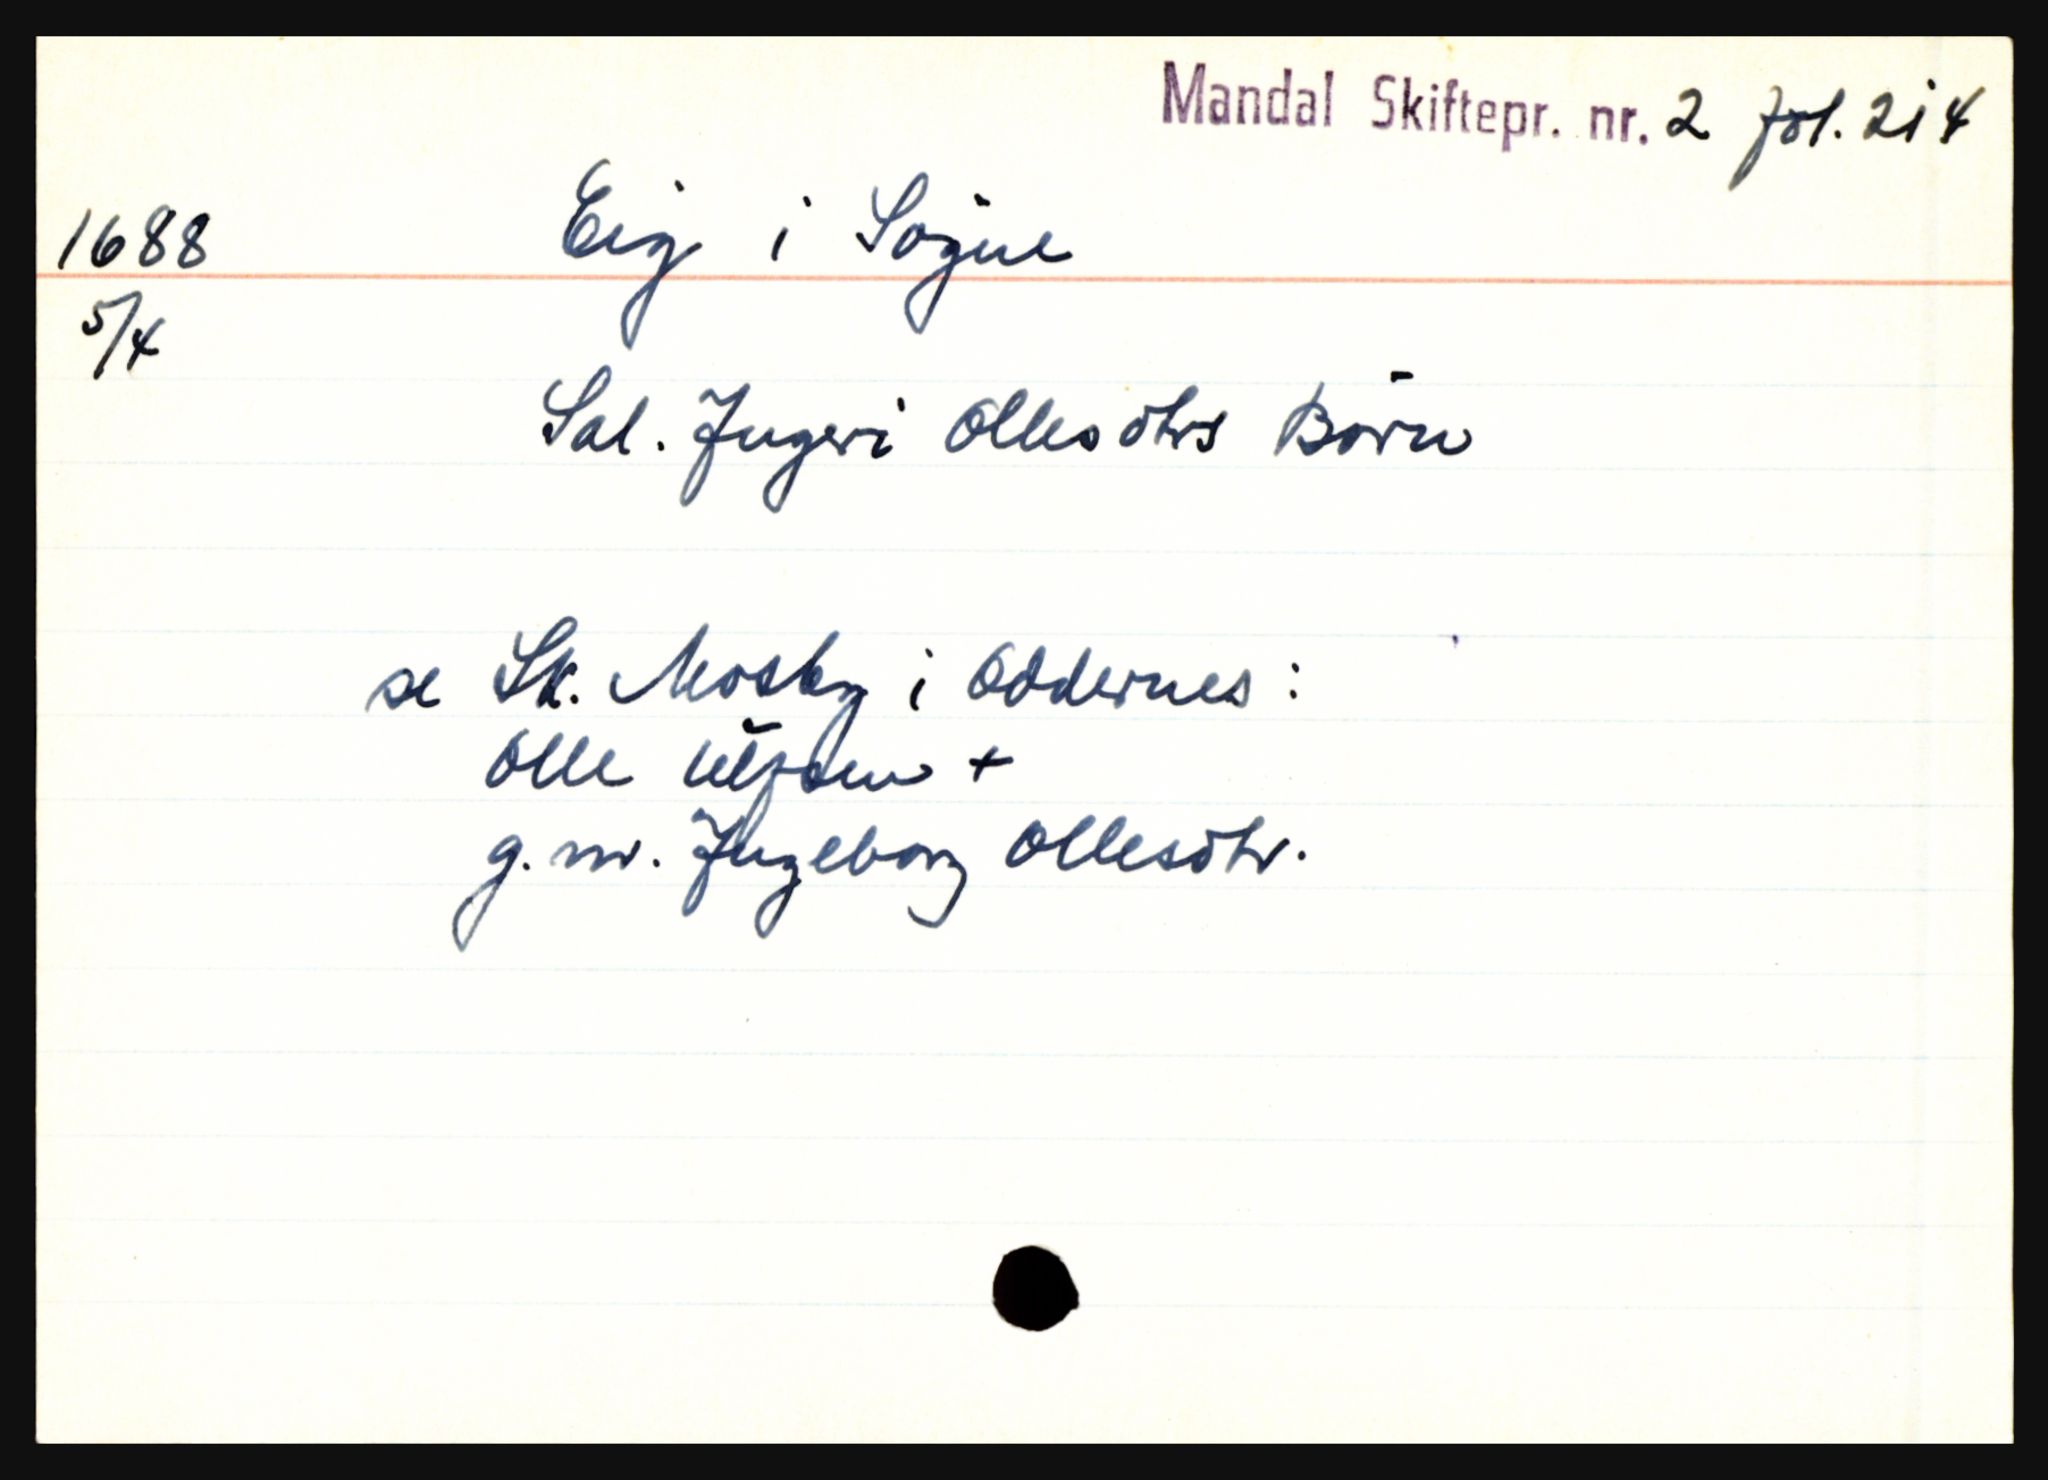 Mandal Skiftepr. nr. 2 fol. 214
1688 Eig i Sogne
5/4
Sal. Jngeri Ollesdtrs Børn
se Sk. Mosby i Oddernes:
Olle Ulfsen +
g. m. Jngeborg Ollesdtr.